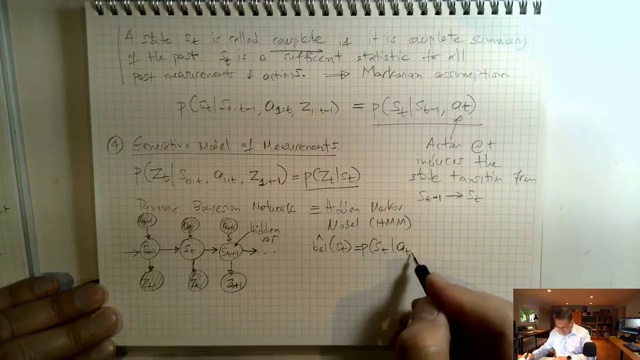 A state St is called complete if it is complete summary
of the past St is a sufficent statistic for all
past measurements & actions. ⟹ Markovian assumption
p(St|S0:t-1, a1:t, Z1:t-1) = p(St|St-1, at)
Action @ t
induces the
state transition from
St-1 → St
④ Generative Model of Measurements
p(Zt|S0:t, a1:t, Z1:t-1) = p(Zt|St)
Dynamic Bayesian Network ≡ Hidden Markov
Model (HMM)
at-1 at at+1
Hidden
var
St-1 St St+1 ...
Zt-1 Zt Zt+1
bel(St) = p(St|at